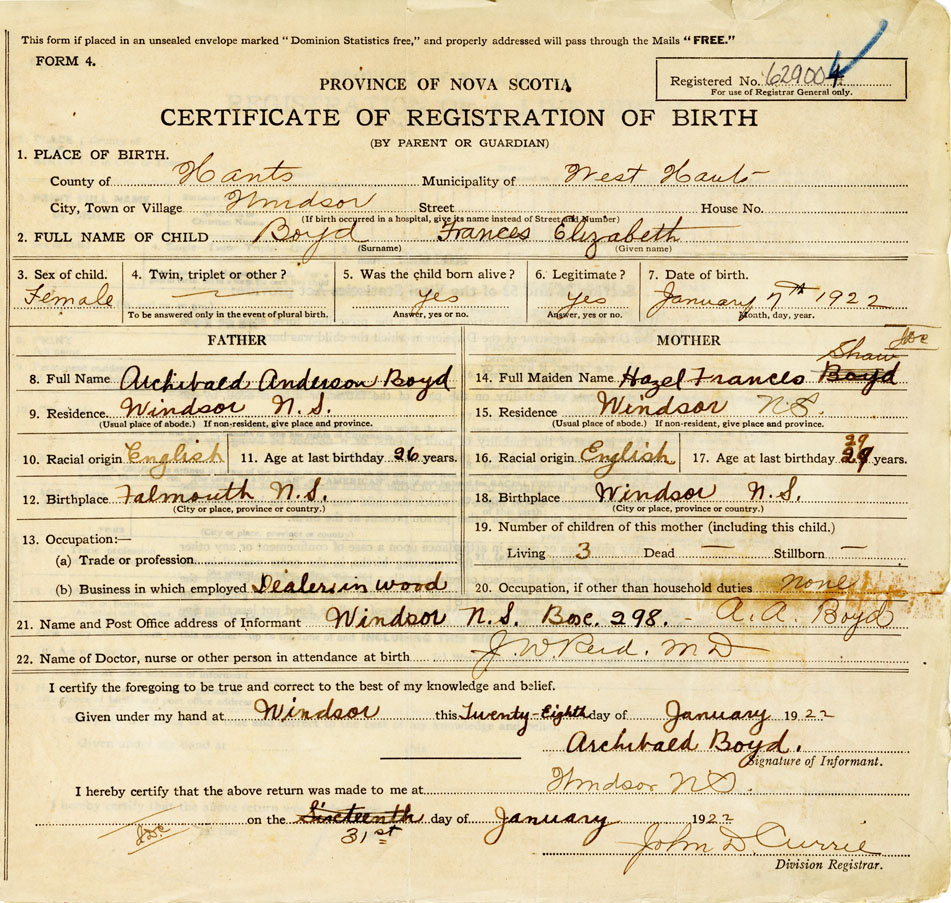 This form if placed in an unsealed envelope marked "Dominion Statistics free," and properly addressed will pass through the Mails "FREE."
FORM 4.
PROVINCE OF NOVA SCOTIA
Registered No. 629004
For use of Registrar General only.
CERTIFICATE OF REGISTRATION OF BIRTH
(BY PARENT OR GUARDIAN)
1. PLACE OF BIRTH.
County of Hants Municipality of West Hants
City, Town or Village Windsor Street House No.
(If birth occurred in a hospital, give its name instead of Street and Number)
2. FULL NAME OF CHILD Boyd Frances Elizabeth
(Surname) (Given name)
3. Sex of child. 4. Twin, triplet or other? 5. Was the child born alive? 6. Legitimate? 7. Date of birth.
Female — yes yes January 7th 1922
To be answered only in the event of plural birth. Answer, yes or no. Answer, yes or no. Month, day, year.
FATHER
8. Full Name Archibald Anderson Boyd
9. Residence Windsor N.S.
(Usual place of abode.) If non-resident, give place and province.
10. Racial origin English 11. Age at last birthday 26 years.
12. Birthplace Falmouth N.S.
(City or place, province or country.)
13. Occupation:—
(a) Trade or profession
(b) Business in which employed Dealers in wood
MOTHER
Shaw JDC
14. Full Maiden Name Hazel Frances Boyd
15. Residence Windsor N.S.
(Usual place of abode.) If non-resident, give place and province.
29
16. Racial origin English 17. Age at last birthday years.
18. Birthplace Windsor N.S.
(City or place, province or country.)
19. Number of children of this mother (including this child.)
Living 3 Dead — Stillborn —
20. Occupation, if other than household duties none
21. Name and Post Office address of Informant Windsor N.S. Box. 298. - A. A. Boyd
22. Name of Doctor, nurse or other person in attendance at birth J. W. Reid. M D
I certify the foregoing to be true and correct to the best of my knowledge and belief.
Given under my hand at Windsor this Twenty-Eighth day of January 1922
Archibald Boyd.
Signature of Informant.
I hereby certify that the above return was made to me at Windsor N.S.
on the Sixteenth day of January 1922
JDC 31st
John D. Currie
Division Registrar.